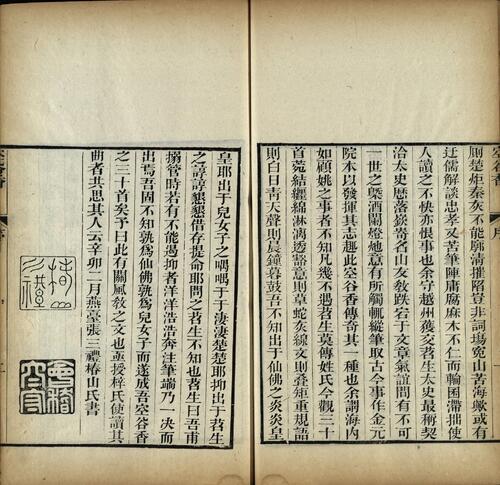 空谷香
序
則楚炬秦灰不能廓清摧陷豈非詞場寃山苦海歟或有
迂儒解談忠孝又苦筆陣庸腐麻木不仁而輪囷滯拙使
人讀之不快亦恨事也余守越州獲交苕生太史最稱契
洽太史歷落嶔崎名山友敎跌宕于文章氣誼間有不可
一世之槩酒闌燈灺意有所觸輒縱筆取古今事作金元
院本以發揮其志趣此空谷香傳奇其一種也余謂海內
如顧姚之事者不知凡幾不遇苕生莫傳姓氏今觀三十
首菀結纏綿淋漓透豁意則草蛇灰線文則疊矩重規語
則白日靑天聲則晨鐘暮鼓吾不知出于仙佛之炎炎皇
皇耶出于兒女子之喁喁于于淒淒楚楚耶抑出于苕生
之諄諄懇懇借存提命耶問之苕生不知也苕生曰吾甫
搦管時若有不能遏抑者洋洋浩浩奔注筆端乃一决而
出焉吾固不知孰爲仙佛孰爲兒女子而遂成吾空谷香
之三十首矣予曰此有關風敎之文也亟授梓氏使讀其
曲者共思其人云辛卯二月燕臺張三禮椿山氏書
空谷香
序